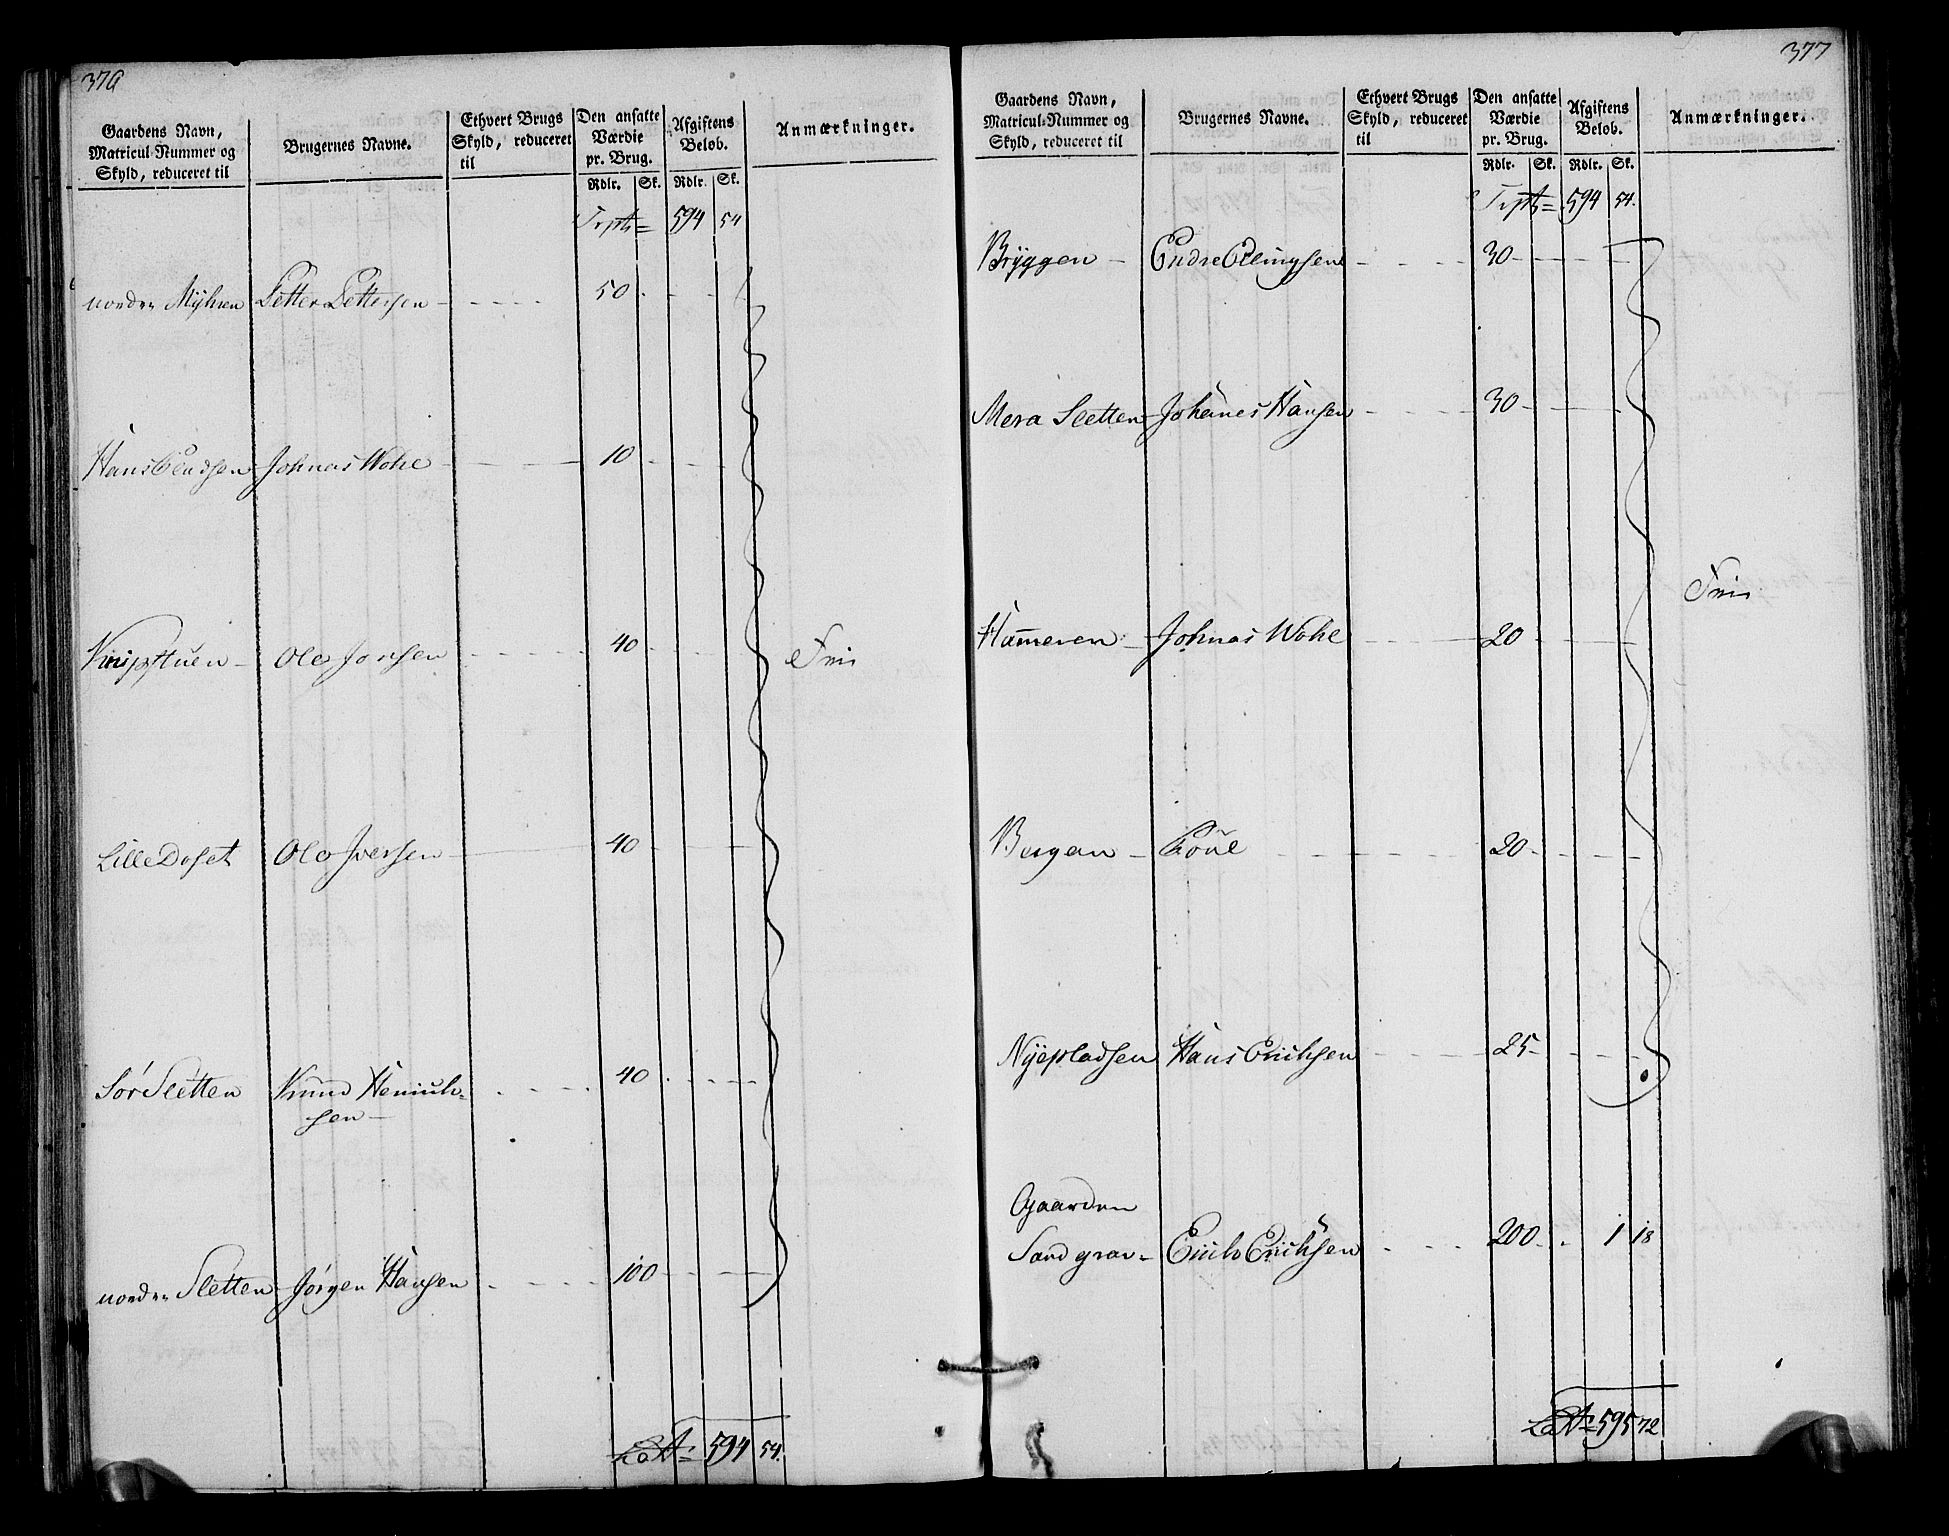 376
Gaardens Navn,
Matricul-Nummer og
Skyld, reduceret til
Brugernes Navne.
Ethvert Brugs
Skyld, reduceret
til
Den ansatte
Værdie
pr. Brug.
Rdlr. Sk.
Afgiftens
Beløb.
Rdlr. Sk.
Anmærkninger.
594 54
norder Myhren Petter Pettersen 50
Hans Johnas Wohe 10
Ole 40 Frie
Lille Ole Iversen 40
Sör Sletten Knud Henrich-
sen 40
norder Sletten Jörgen Hansen 100
594 54.
377
Gaardens Navn,
Matricul-Nummer og
Skyld, reduceret til
Brugernes Navne.
Ethvert Brugs
Skyld, reduceret
til
Den ansatte
Værdie
pr. Brug.
Rdlr. Sk.
Afgiftens
Beløb.
Rdlr. Sk.
Anmærkninger.
594 54.
Bryggen Endre 30
Mera Sletten Johanes Hansen 30
Frie
Hammeren Johnas Wohe 20
Bergan Poul 20
Nyepladsen Hans Erichsen 25
Gaarden
Sandgrav Erich Erichsen 200 1 18
595 72